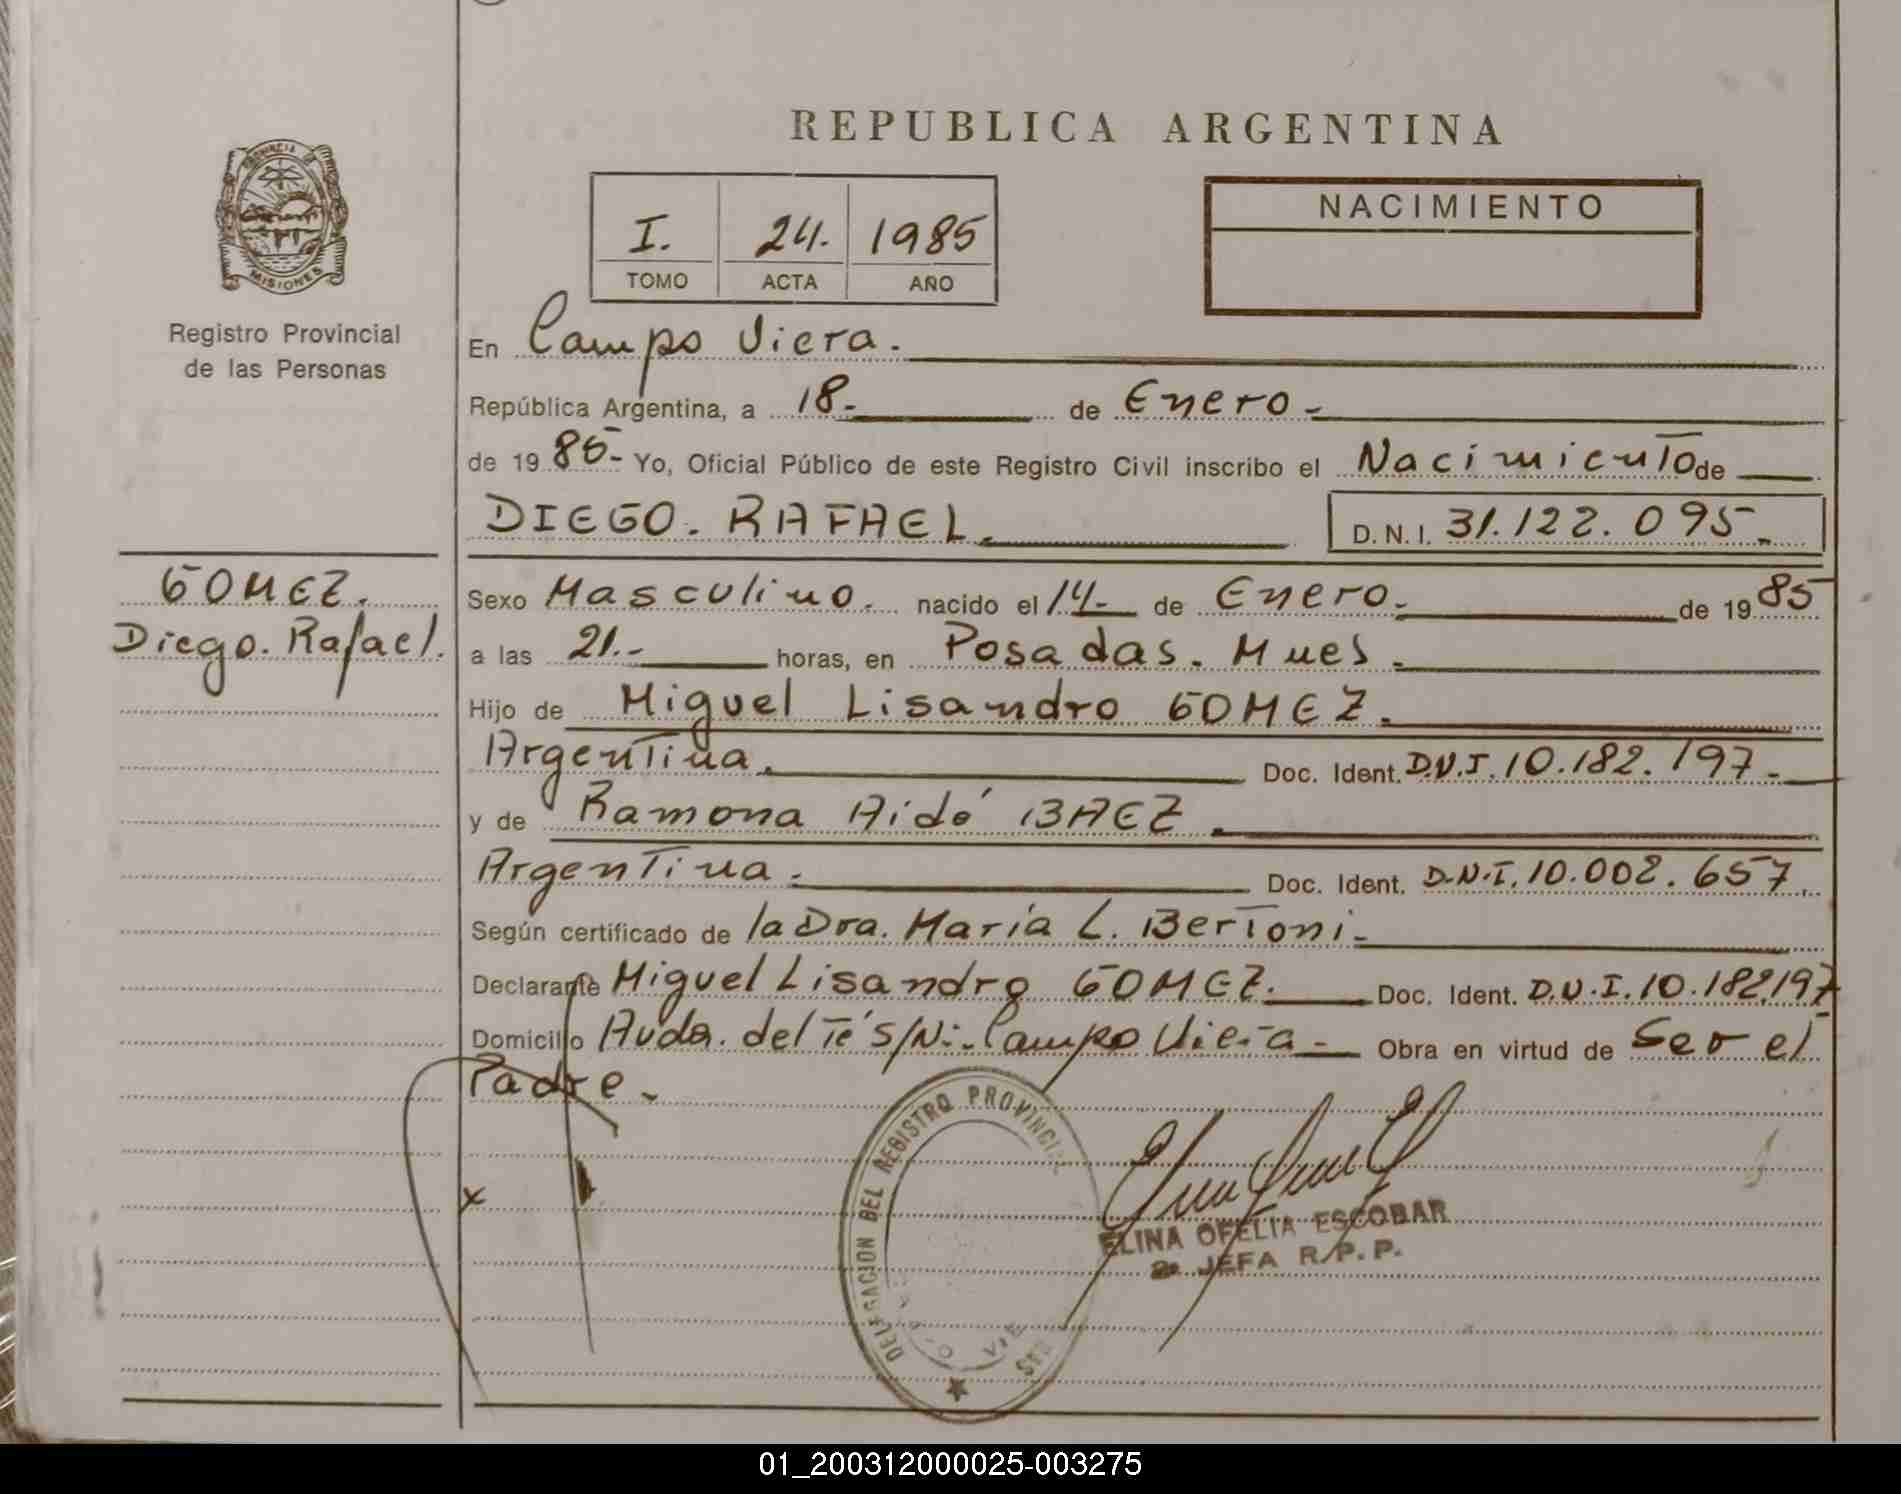 REPUBLICA ARGENTINA
PROVINCIA DE
MISIONES
Registro Provincial
de las Personas
I. 24. 1985
TOMO ACTA AÑO
NACIMIENTO
En Campo Viera.
República Argentina, a 18- de Enero-
de 1985- Yo, Oficial Público de este Registro Civil inscribo el Nacimiento de
DIEGO. RAFAEL. D. N. I. 31.122.095.-
GOMEZ.
Diego. Rafael.
Sexo Masculino. nacido el 14- de Enero.- de 1985
a las 21.- horas, en Posadas. Mnes.
Hijo de Miguel Lisandro GOMEZ.
Argentina. Doc. Ident. D.N.I. 10.182.197.-
y de Ramona Aidé BAEZ.
Argentina. Doc. Ident. D.N.I. 10.002.657.
Según certificado de la Dra. María L. Bertoni.-
Declarante Miguel Lisandro GOMEZ. Doc. Ident. D.N.I. 10.182.197
Domicilio Avda. del Té S/N:. Campo Viera- Obra en virtud de Ser el
Padre.-
x
DELEGACION DEL REGISTRO PROVINCIAL
ELINA OFELIA ESCOBAR
JEFA R.P.P.
01_200312000025-003275